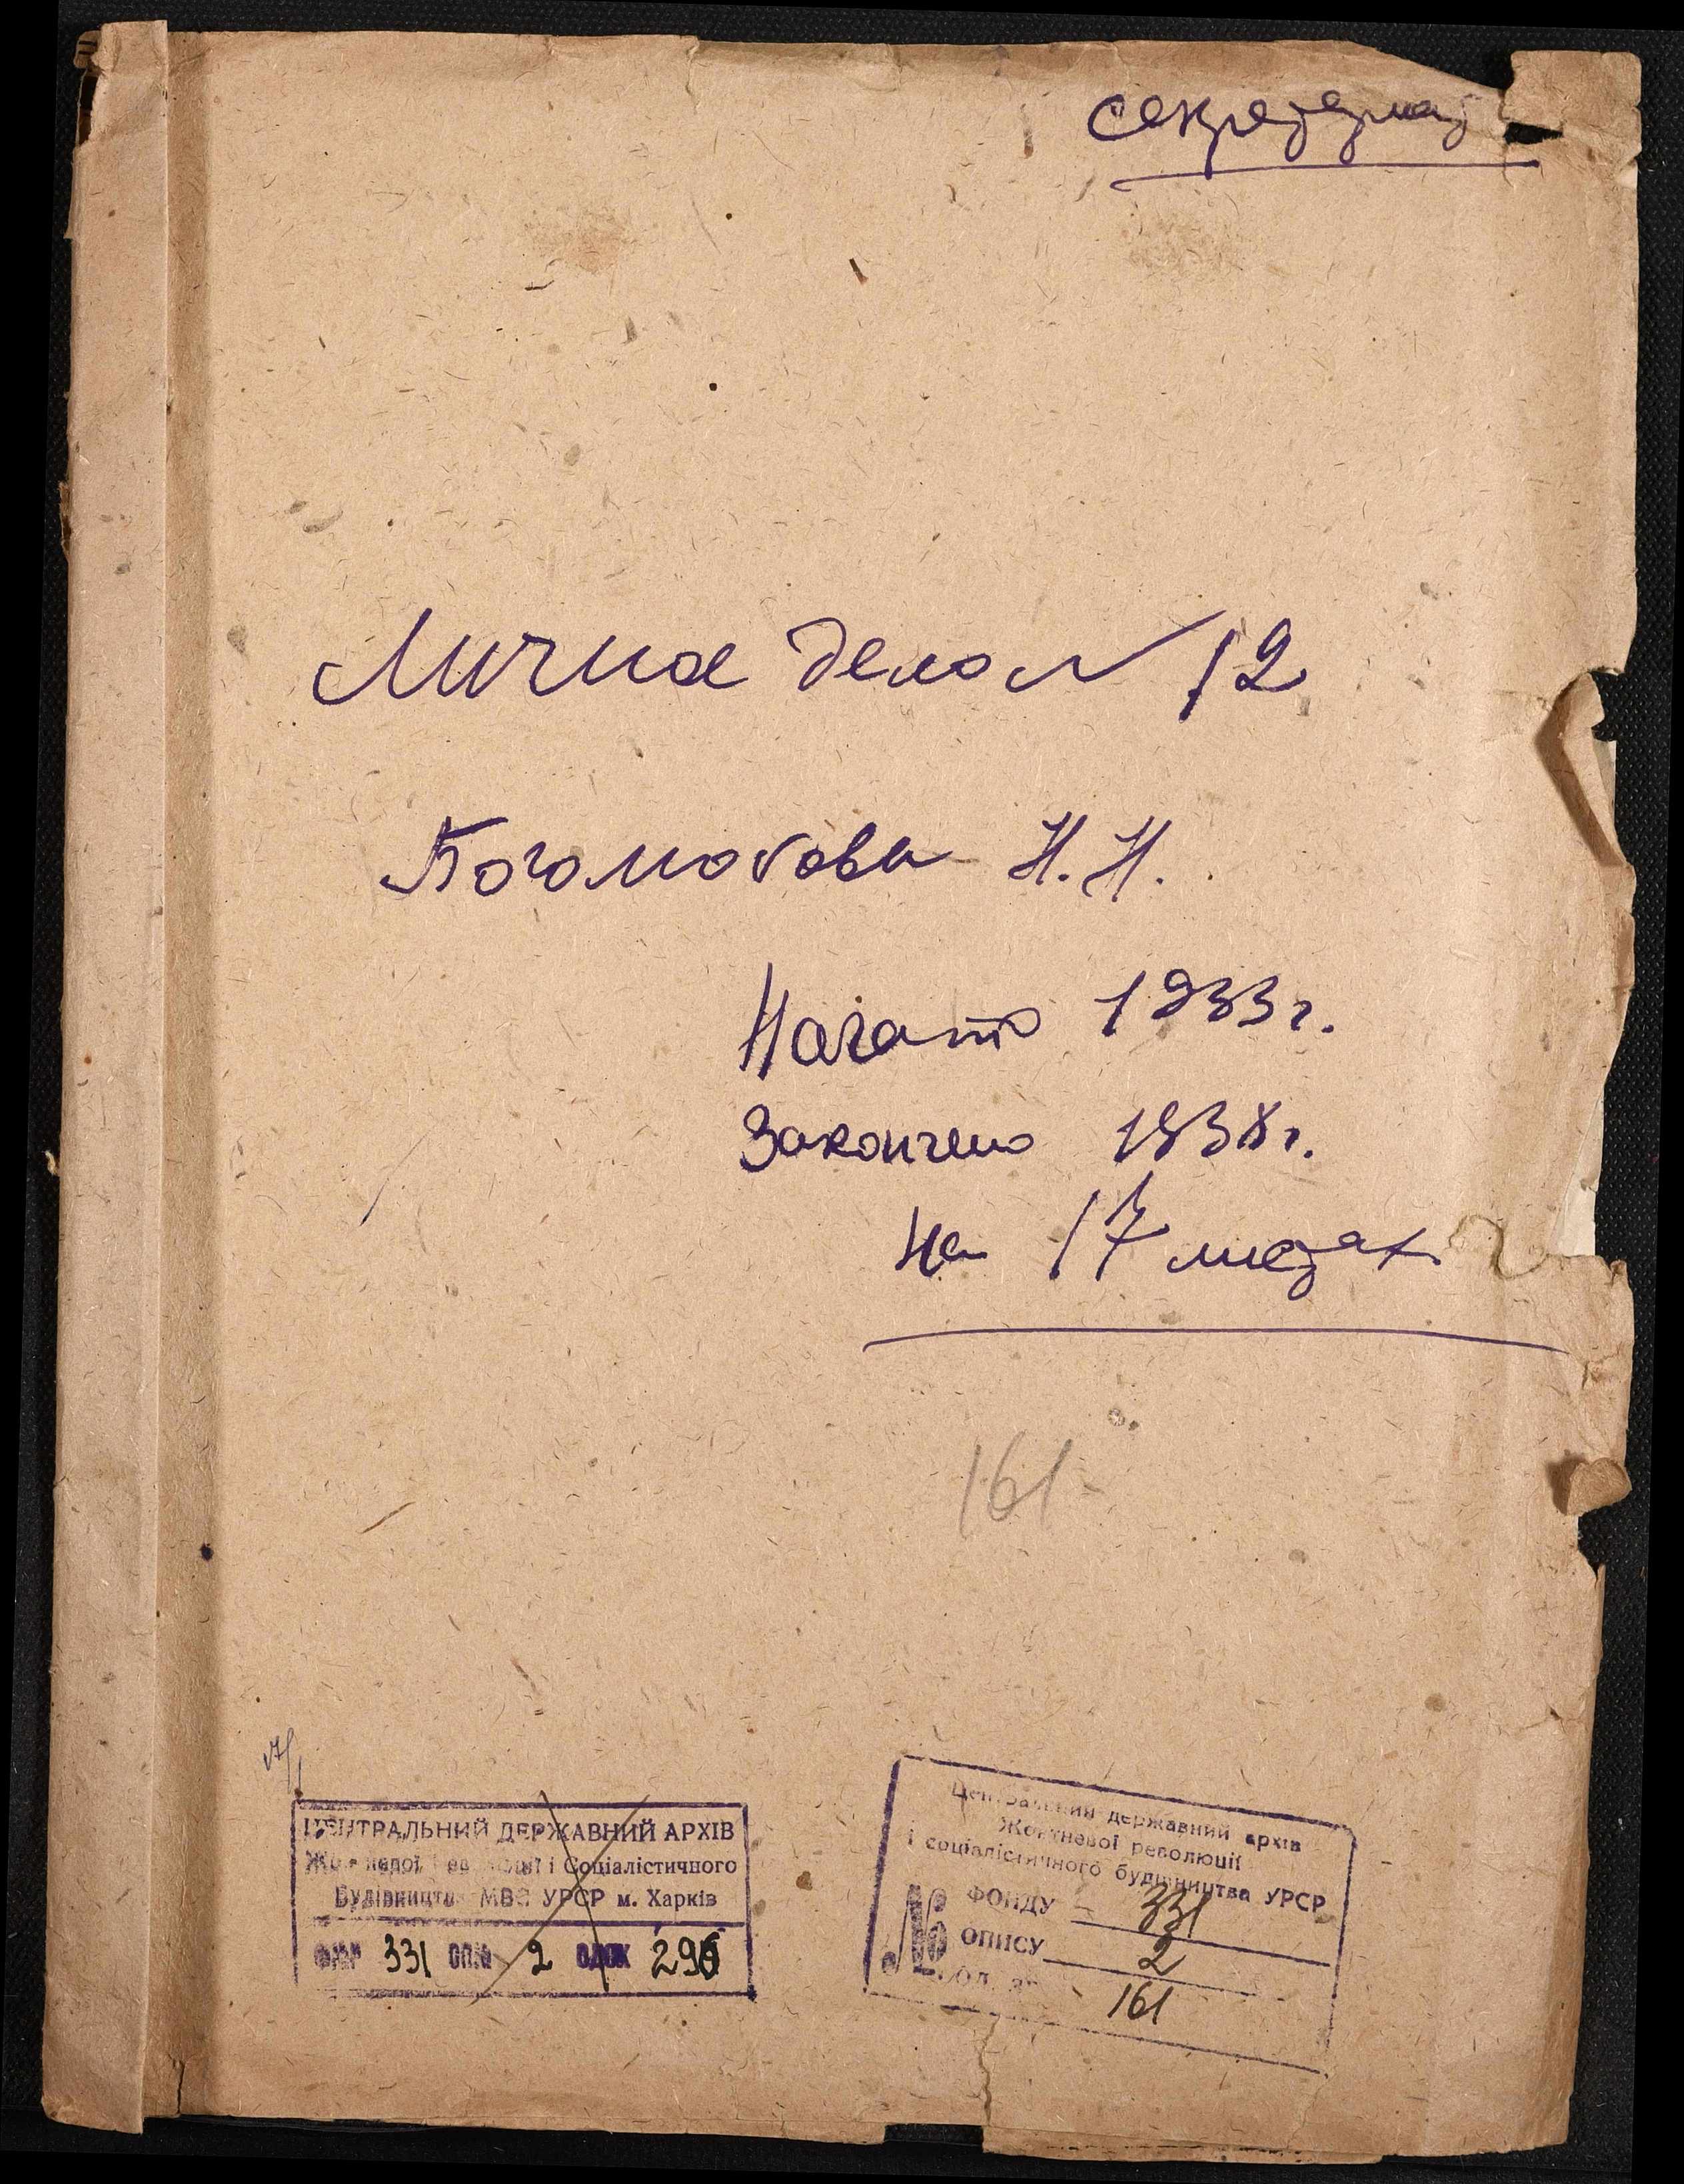 секретариат
Личное дело № 12
Богомолова Н.Н.
Начато 1933 г.
Закончено 1938 г.
на 17 листах
161
ЦЕНТРАЛЬНИЙ ДЕРЖАВНИЙ АРХІВ
Жовтневої революції і Соціалістичного
Будівництва МВС УРСР м. Харків
ФОНД 331 ОПИС 2 ОД.ЗБ 296
Центральний державний архів
Жовтневої революції
і соціалістичного будівництва УРСР
№ ФОНДУ 331
ОПИСУ 2
ОД. ЗБ. 161